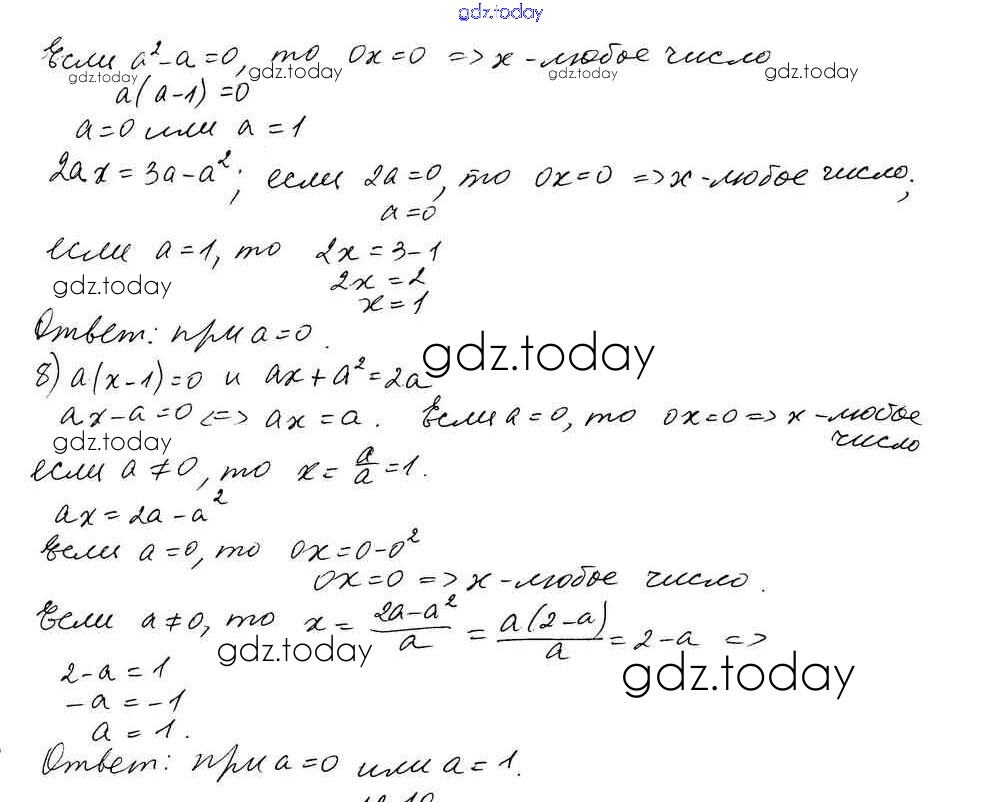 gdz.today
Если a²-a=0, то 0x=0 => x-любое число
gdz.today gdz.today gdz.today gdz.today
a(a-1)=0
a=0 или a=1
2ax=3a-a²; если 2a=0, то 0x=0 => x-любое число;
a=0
если a=1, то 2x=3-1
gdz.today 2x=2
x=1
Ответ: при a=0.
gdz.today
8) a(x-1)=0 и ax+a²=2a
ax-a=0 <=> ax=a. Если a=0, то 0x=0 => x-любое
gdz.today число
если a≠0, то x=a/a=1.
ax=2a-a²
Если a=0, то 0x=0-0²
0x=0 => x-любое число.
Если a≠0, то x=(2a-a²)/a=a(2-a)/a=2-a =>
gdz.today
2-a=1 gdz.today
-a=-1
a=1.
Ответ: при a=0 или a=1.